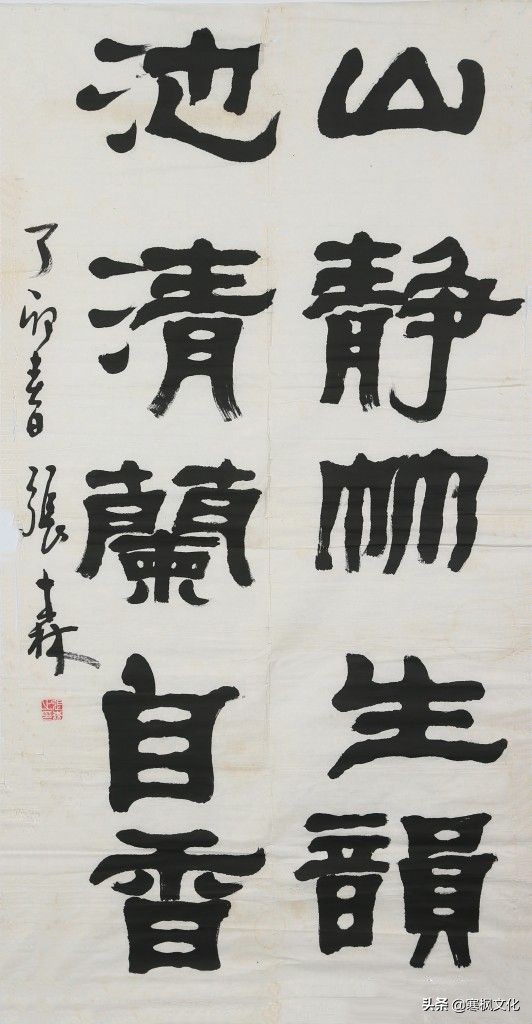 山静竹生韻
池清蘭自香
丁卯春 張森
头条 @寒枫文化